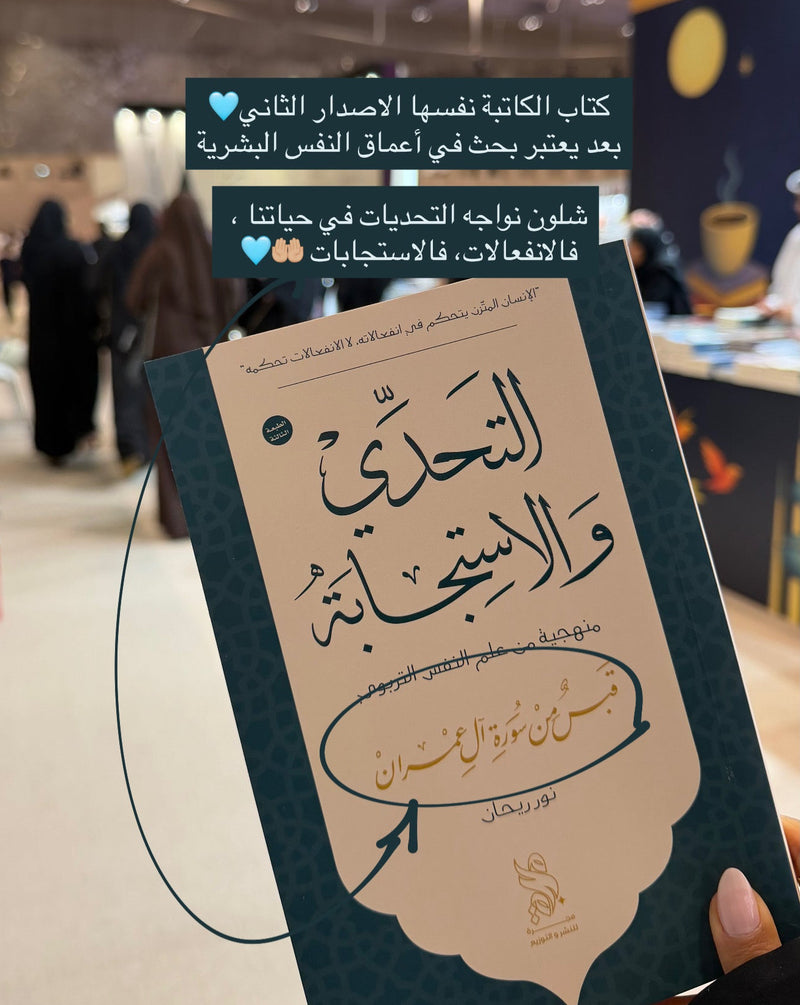 كتاب الكاتبة نفسها الاصدار الثاني🩵
بعد يعتبر بحث في أعماق النفس البشرية
شلون نواجه التحديات في حياتنا ،
فالانفعالات، فالاستجابات🤲🏼🩵
"الإنسان المتّزن يتحكم في انفعالاته، لا الانفعالات تحكمه"
الطبعة
الثالثة
التَحَدِّي
وَالاسِتجَابَةُ
منهجية من علم النفس التربوي
قَبَسٌ مِنْ سُورَةِ آلِ عِمْرَان
نور ريحان
مجرة
للنشر و التوزيع